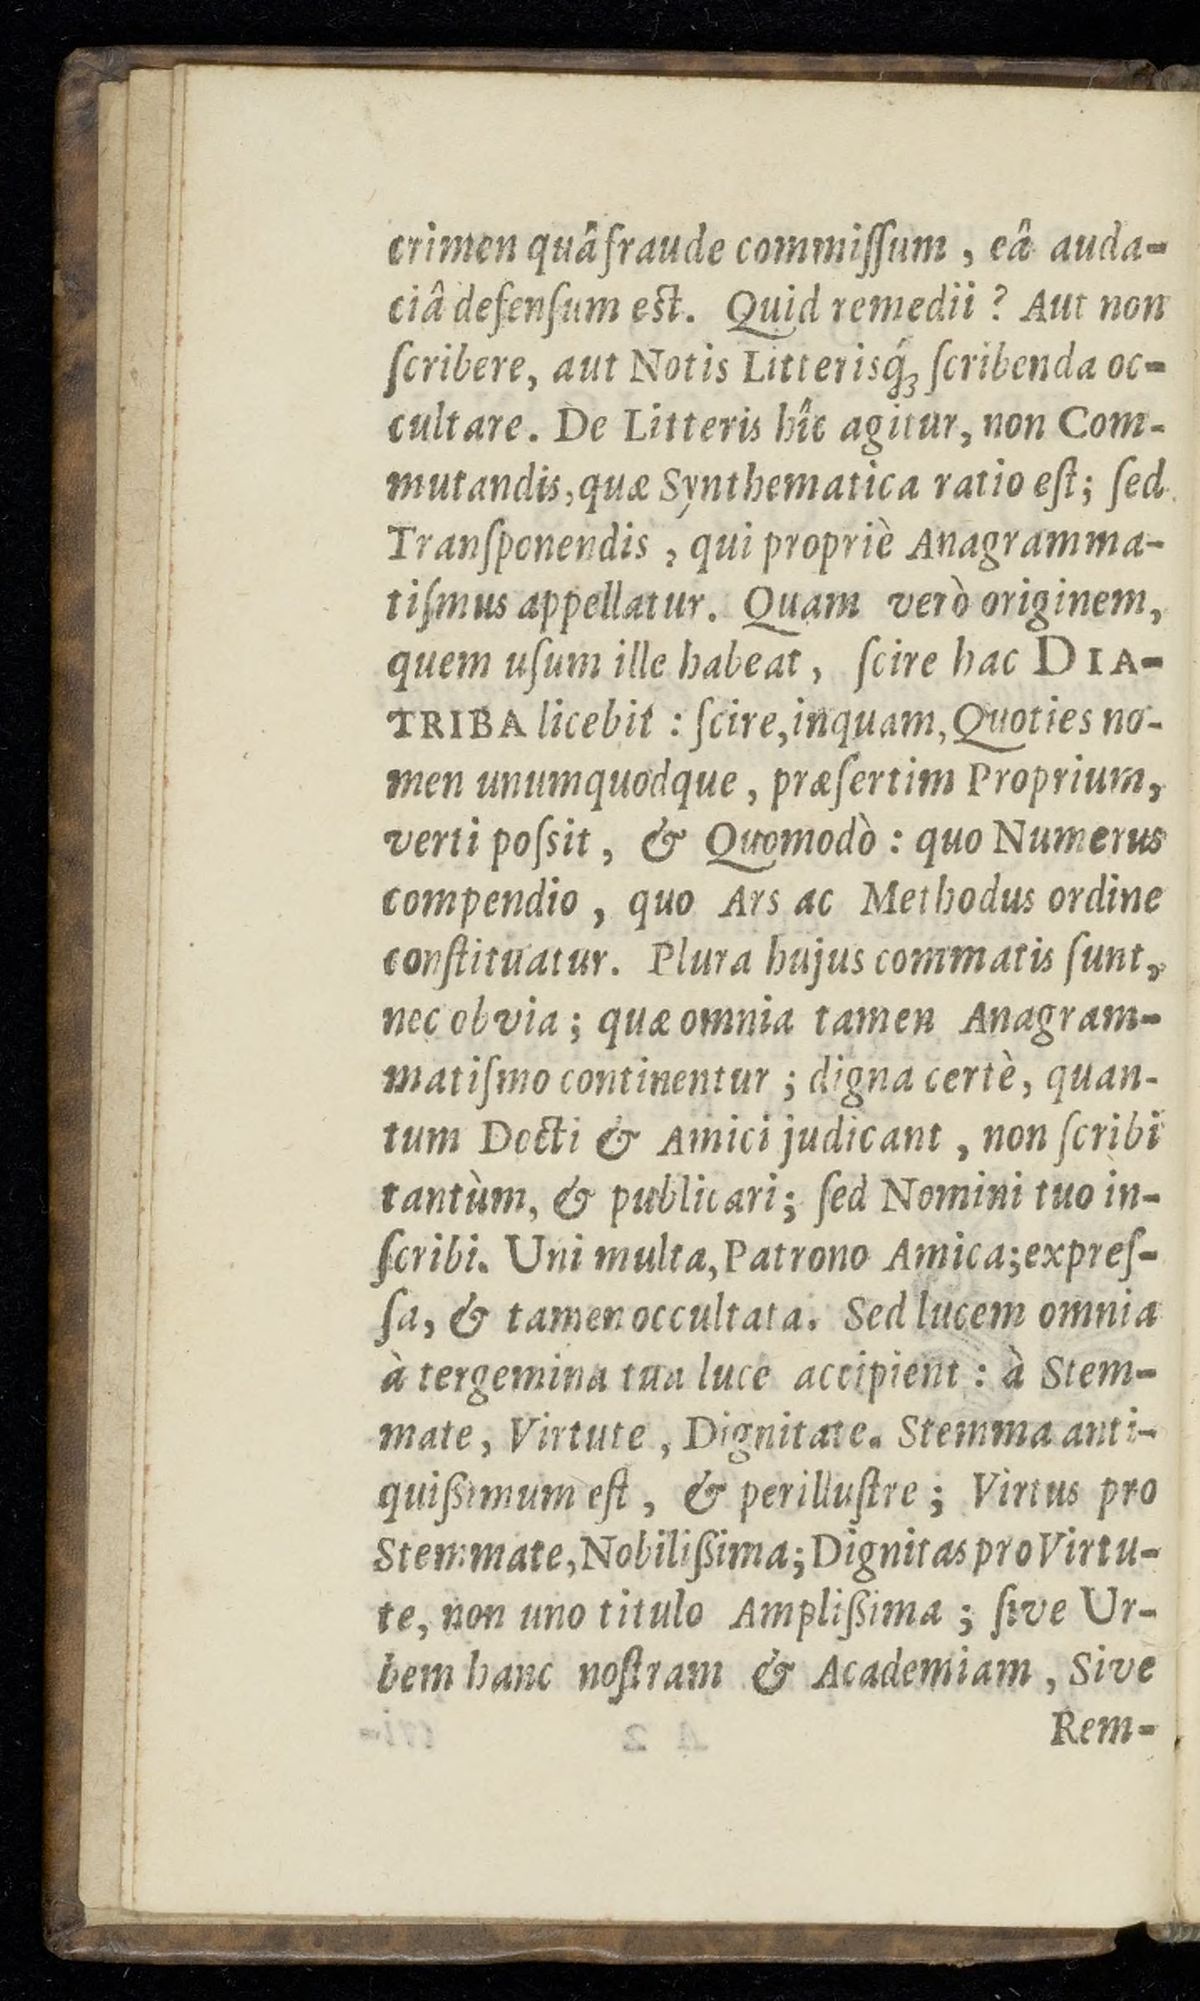 crimen quâ fraude commiſſum, eâ auda-
ciâ defenſum eſt. Quid remedii? Aut non
ſcribere, aut Notis Litterisq́ꝫ ſcribenda oc-
cultare. De Litteris hîc agitur, non Com-
mutandis, quæ Synthematica ratio eſt; ſed
Tranſponendis, qui propriè Anagramma-
tiſmus appellatur. Quam verò originem,
quem uſum ille habeat, ſcire hac DIA-
TRIBA licebit: ſcire, inquam, Quoties no-
men unumquodque, præſertim Proprium,
verti poſsit, & Quomodò: quo Numerus
compendio, quo Ars ac Methodus ordine
conſtituatur. Plura hujus commatis ſunt,
nec obvia; quæ omnia tamen Anagram-
matiſmo continentur; digna certè, quan-
tum Docti & Amici judicant, non ſcribi
tantùm, & publicari; ſed Nomini tuo in-
ſcribi. Uni multa, Patrono Amica; expreſ-
ſa, & tamen occultata. Sed lucem omnia
à tergemina tua luce accipient: à Stem-
mate, Virtute, Dignitate. Stemma anti-
quiſsimum eſt, & perilluſtre; Virtus pro
Stemmate, Nobiliſsima; Dignitas pro Virtu-
te, non uno titulo Ampliſsima; ſive Ur-
bem hanc noſtram & Academiam, Sive
Rem-